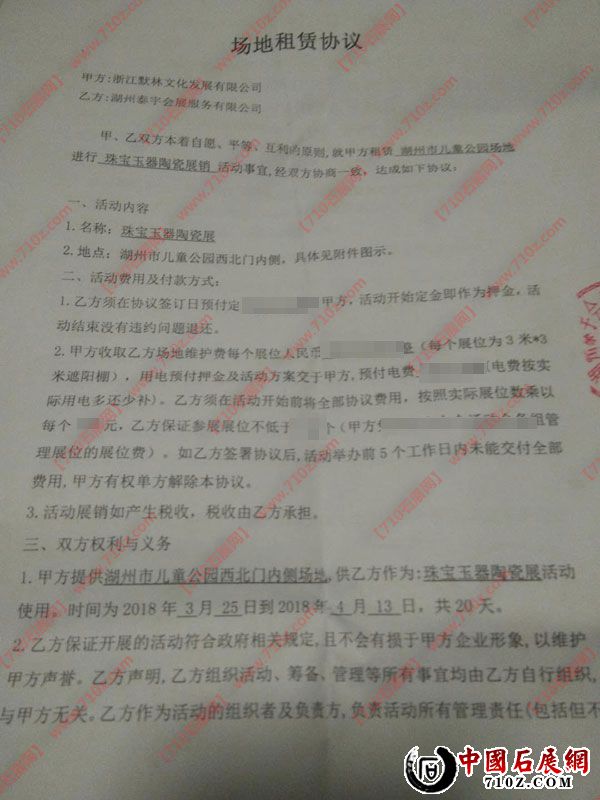 场地租赁协议
甲方:浙江默林文化发展有限公司
乙方:湖州泰宇会展服务有限公司
甲、乙双方本着自愿、平等、互利的原则,就甲方租赁 湖州市儿童公园场地
进行 珠宝玉器陶瓷展销 活动事宜,经双方协商一致,达成如下协议:
一、活动内容
1.名称: 珠宝玉器陶瓷展
2.地点: 湖州市儿童公园西北门内侧,具体见附件图示。
二、活动费用及付款方式:
1.乙方须在协议签订日预付定 甲方,活动开始定金即作为押金,活
动结束没有违约问题退还。
2.甲方收取乙方场地维护费每个展位人民币 整(每个展位为3米*3
米遮阳棚),用电预付押金及活动方案交于甲方,预付电费 电费按实
际用电多还少补)。乙方须在活动开始前将全部协议费用,按照实际展位数乘以
每个 元,乙方保证参展展位不低于 个(甲方 管
理展位的展位费)。如乙方签署协议后,活动举办前5个工作日内未能交付全部
费用,甲方有权单方解除本协议。
3.活动展销如产生税收,税收由乙方承担。
三、双方权利与义务
1.甲方提供湖州市儿童公园西北门内侧场地,供乙方作为:珠宝玉器陶瓷展活动
使用。时间为2018年 3 月 25 日到2018年 4 月 13 日,共20天。
2.乙方保证开展的活动符合政府相关规定,且不会有损于甲方企业形象,以维护
甲方声誉。乙方声明,乙方组织活动、筹备、管理等所有事宜均由乙方自行组织,
与甲方无关。乙方作为活动的组织者及负责方,负责活动所有管理责任(包括但不
【710石展网】www.710z.com
中國石展網
710Z.COM